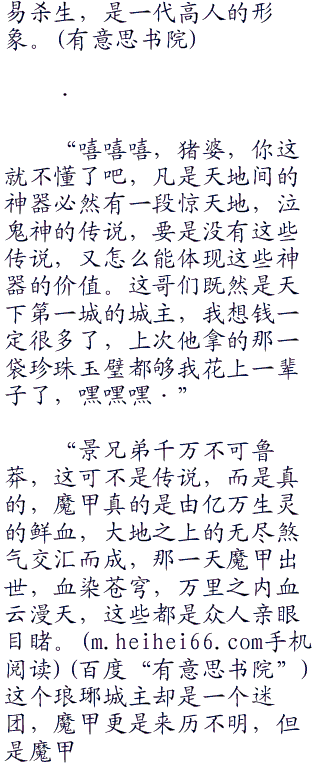 易杀生，是一代高人的形
象。(有意思书院)
·
“嘻嘻嘻，猪婆，你这
就不懂了吧，凡是天地间的
神器必然有一段惊天地，泣
鬼神的传说，要是没有这些
传说，又怎么能体现这些神
器的价值。这哥们既然是天
下第一城的城主，我想钱一
定很多了，上次他拿的那一
袋珍珠玉璧都够我花上一辈
子了，嘿嘿嘿·”
“景兄弟千万不可鲁
莽，这可不是传说，而是真
的，魔甲真的是由亿万生灵
的鲜血，大地之上的无尽煞
气交汇而成，那一天魔甲出
世，血染苍穹，万里之内血
云漫天，这些都是众人亲眼
目睹。(m.heihei66.com手机
阅读)(百度“有意思书院”)
这个琅琊城主却是一个迷
团，魔甲更是来历不明，但
是魔甲